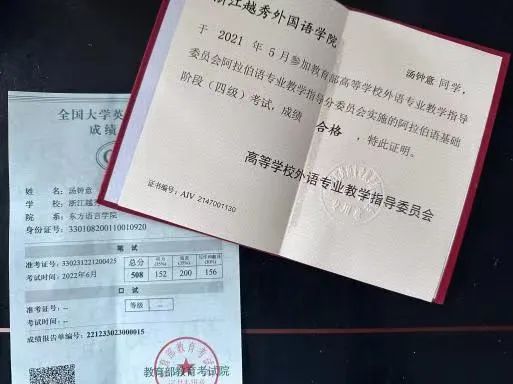 浙江越秀外国语学院
汤钟意 同学,
于 2021 年 5 月参加教育部高等学校外语专业教学指导
委员会阿拉伯语专业教学指导分委员会实施的阿拉伯语基础
阶段(四级)考试,成绩 合格 ,特此证明。
高等学校外语专业教学指导委员会
证书编号:AIV 2147001130
全国大学英
成绩
姓 名:汤钟意
学 校:浙江越秀
院 系:东方语言学院
身份证号:330108200110010920
笔 试
准考证号:330231221200425
考试时间:2022年6月
总分
508
152
200
156
口 试
准考证号:--
考试时间:--
等级
--
成绩报告单编号:221233023000015
教育部教育考试院